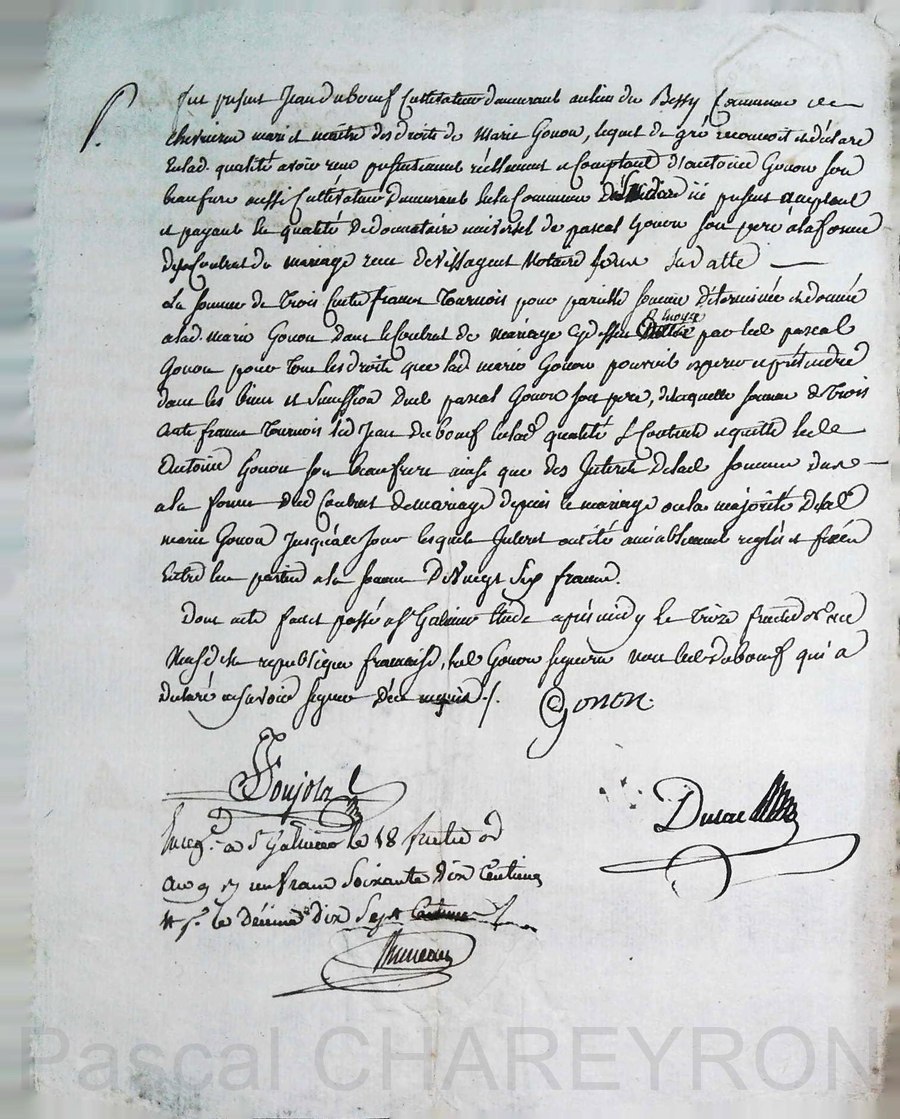 fut present Jean duboeuf Cultivateur demeurant au lieu du Bessy Commune de
chevrieres mari et maitre des droits de Marie Gonon, lequel de gré reconnoit et déclare
Enlad. qualité avoir recu presentement réellement et Comptant d'antoine Gonon son
beaufrere aussi Cultivateur demeurant en la Commune de ici present acceptant
et payant En qualité de donnataire universel de pascal Gonon son pere a la forme
de son Contrat de mariage recu devissaguet Notaire sous sa datte
La somme de Trois Cents francs Tournois pour pareille somme déterminée et donnée
alad. marie Gonon dans le Contrat de mariage cydessus Enoncé par led pascal
Gonon pour Tous les droits que lad marie Gonon pourroit esperer et prétendre
dans les biens et Succession dud pascal Gonon son pere, de laquelle somme de Trois
Cents francs Tournois led Jean duboeuf enlad. qualité se Contente et quitte led
Antoine Gonon son beaufrere ainsi que des Interets delad somme dus
a la forme dud Contrat de mariage depuis le mariage ou la majorité delad
marie Gonon Jusqu'a ce Jour lesquels Interets ont été amiablement reglés et fixés
Entre les parties a la somme de Vingt Six francs.
Dont acte fait et passé a St Galmier Etude après midy le Treize fructidor an
Neuf de la republique francaise, led Gonon signera non led duboeuf qui a
declaré ne savoir signer De ce requis ./.
Gonon
Soujola
Duc
Enreg. a St Galmier le 18 fructidor
an 9 Reçu un franc Soixante dix Centimes
et pr. le décime dix Sept Centimes
Pascal CHAREYRON